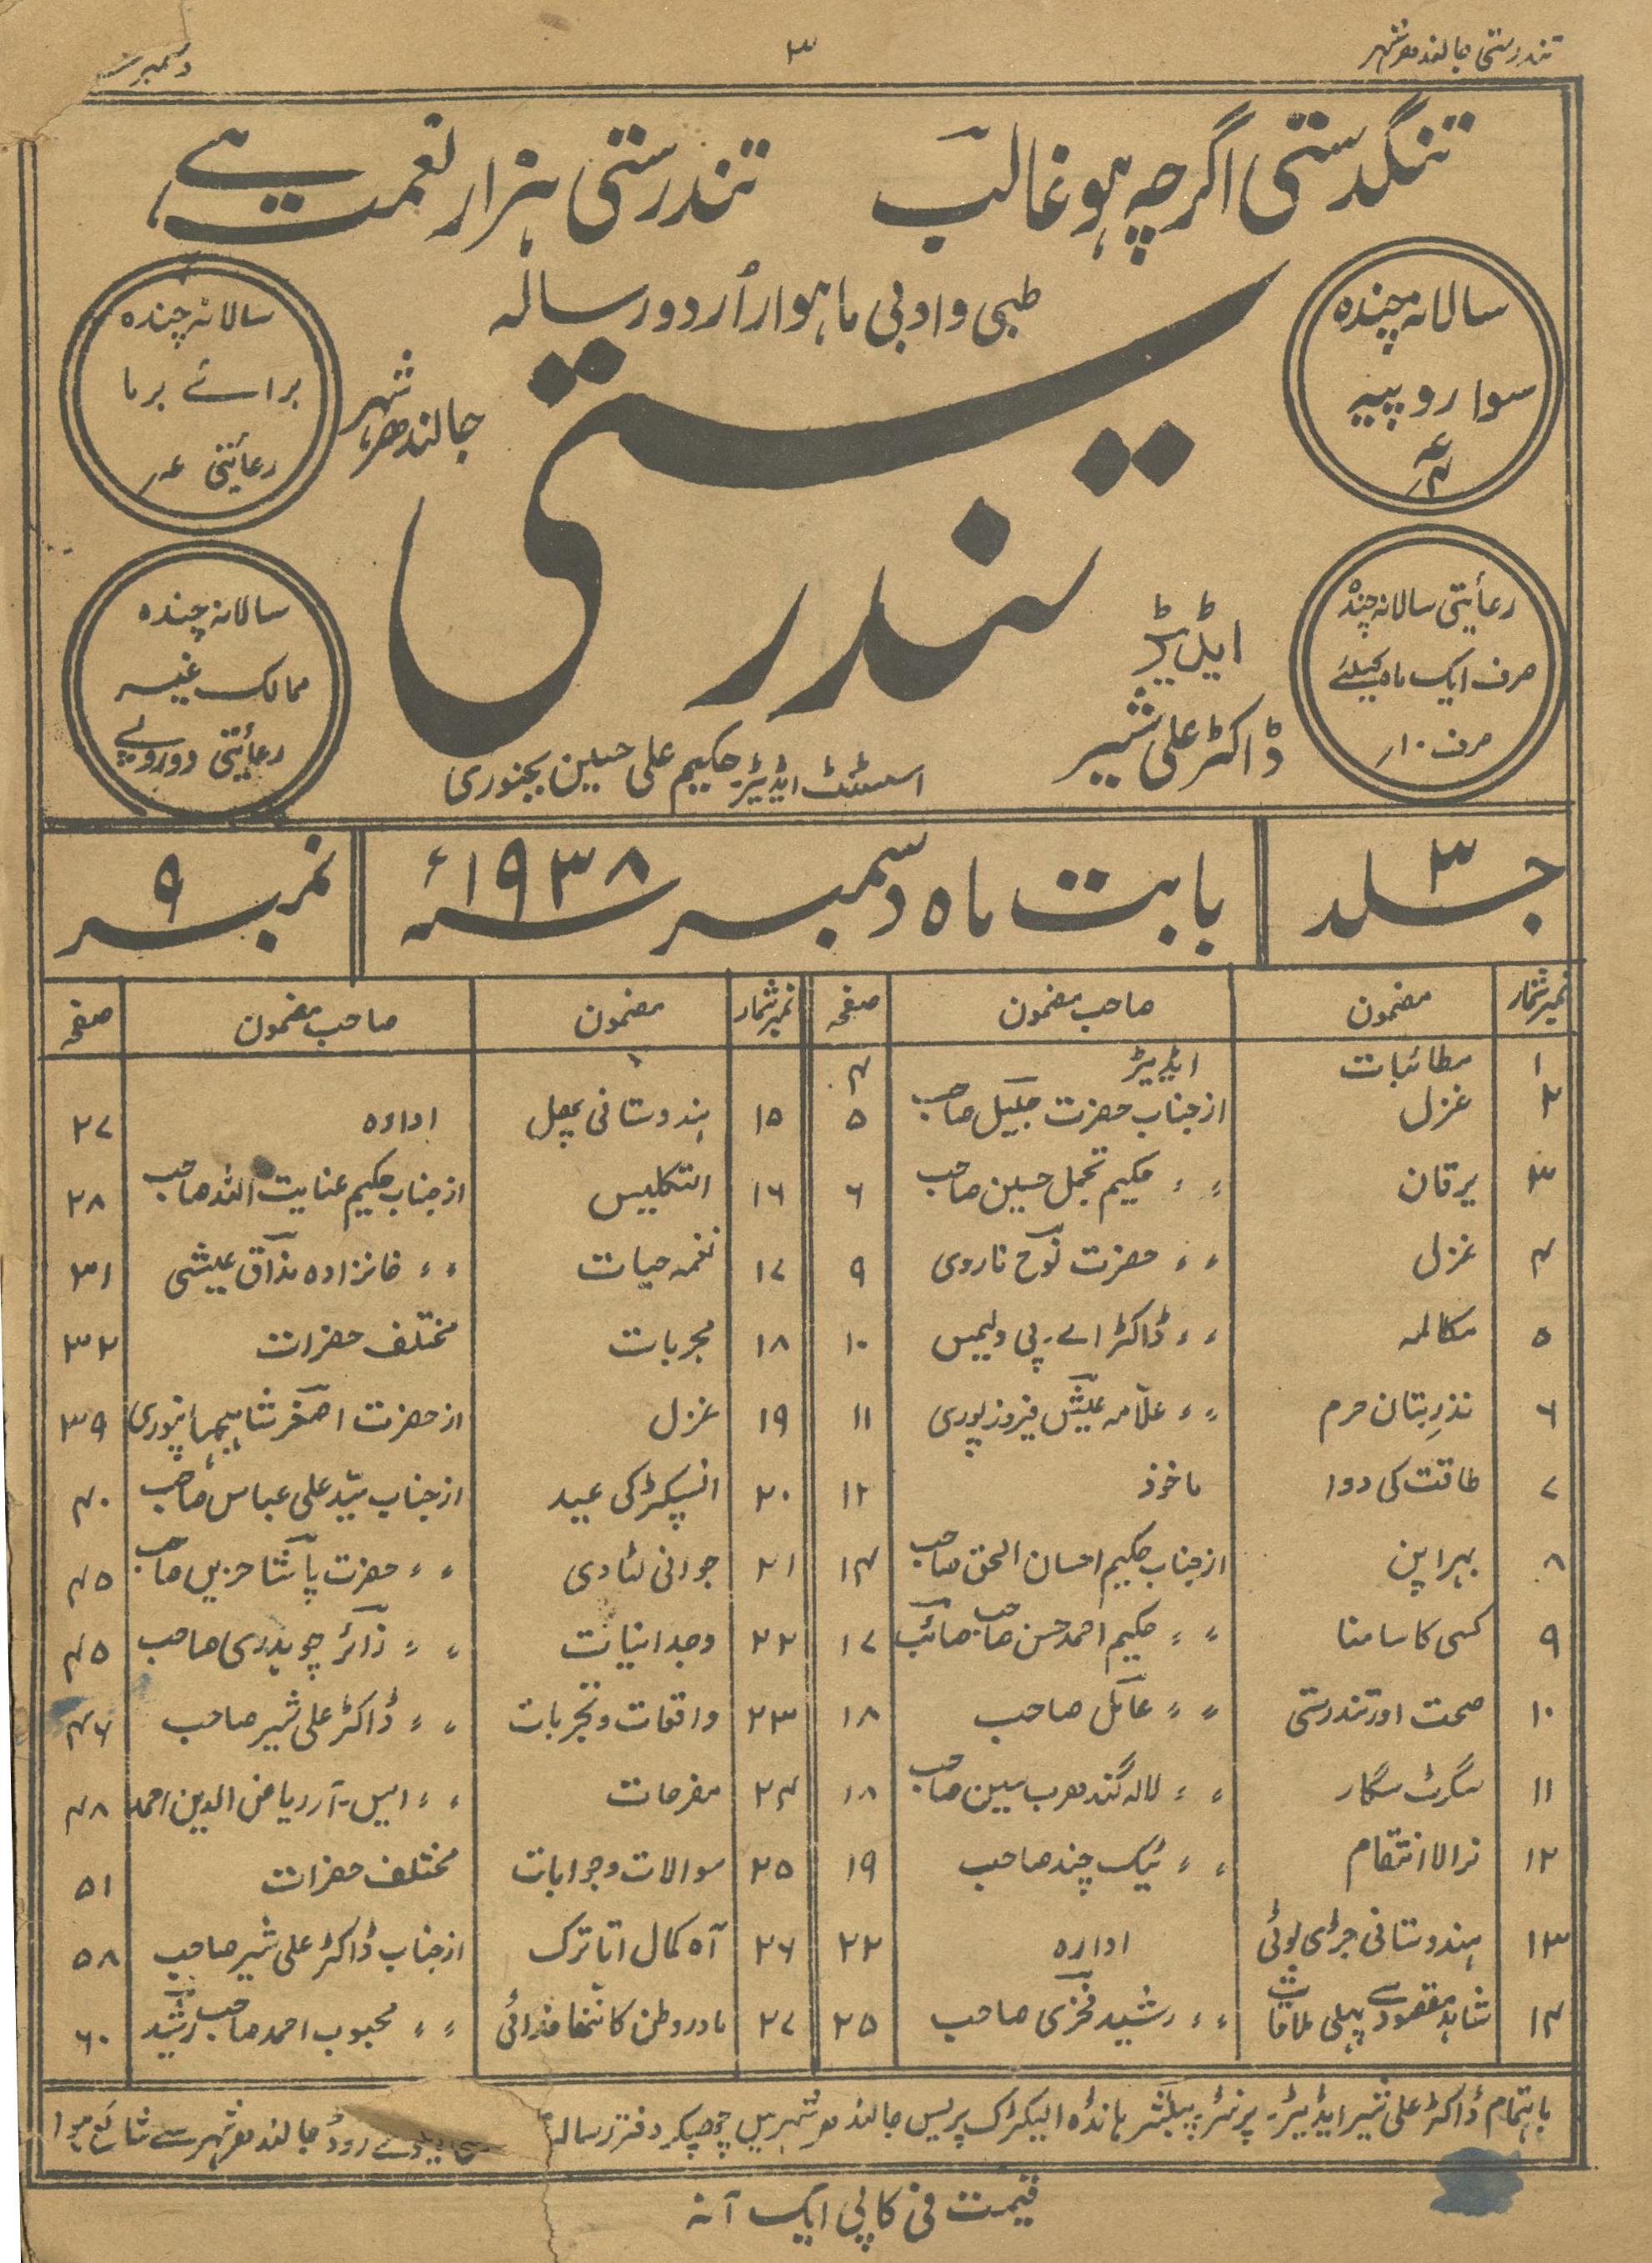 تندرستی جالندھر شہر
۳
دسمبر
تنگدستی اگرچہ ہو غالبؔ تندرستی ہزار نعمت ہے
طبی و ادبی ماہوار اُردو رسالہ
تندرستی
جالندھر شہر
سالانہ چندہ
سوا روپیہ
سالانہ چندہ
برائے برما
رعائتی
رعأیتی سالانہ چندہ
صرف ایک ماہ کیلئے
صرف ۱۰ر
سالانہ چندہ
ممالک غیر
رعأیتی دو روپے
ایڈیٹر
ڈاکٹر علی شبیر
اسسٹنٹ ایڈیٹر۔ حکیم علی حسین بجنوری
جلد ۳
بابت ماہ دسمبر ۱۹۳۸ء
نمبر ۹
نمبر شمار مضمون صاحب مضمون صفحہ
۱ مطائبات ایڈیٹر ۴
۲ غزل از جناب حضرت جلیل صاحب ۵
۳ یرقان 〃 〃 حکیم تجمل حسین صاحب ۶
۴ غزل 〃 〃 حضرت نوحؔ ناروی ۹
۵ مکالمہ 〃 〃 ڈاکٹر اے۔ پی ولیمس ۱۰
۶ نذرِ بتان حرم 〃 〃 علّامہ عیشؔ فیروزپوری ۱۱
۷ طاقت کی دوا ماخوذ ۱۲
۸ بہرا پن از جناب حکیم احسان الحق صاحب ۱۴
۹ کسی کا سامنا 〃 〃 حکیم احمد حسن صاحب صائبؔ ۱۷
۱۰ صحت اور تندرستی 〃 〃 عاملؔ صاحب ۱۸
۱۱ سگرٹ سگار 〃 〃 لالہ گندھرب سین صاحب ۱۸
۱۲ نرالا انتقام 〃 〃 ٹیک چند صاحب ۱۹
۱۳ ہندوستانی جڑی بوٹی ادارہ ۲۲
۱۴ شاہد مقصود سے پہلی ملاقات 〃 〃 رشید فخریؔ صاحب ۲۵
نمبر شمار مضمون صاحب مضمون صفحہ
۱۵ ہندوستانی پھل ادارہ ۲۷
۱۶ التکلیس از جناب حکیم عنایت اللہ صاحب ۲۸
۱۷ نغمہ حیات 〃 〃 خانزادہ مذاقؔ عیشی ۳۱
۱۸ مجربات مختلف حضرات ۳۲
۱۹ غزل از حضرت اصغرؔ شاہجہانپوری ۳۹
۲۰ انسپکٹر کی عید از جناب سیّد علی عباس صاحب ۴۰
۲۱ جوانی لٹا دی 〃 〃 حضرت پاشاؔ حزیں صاحب ۴۵
۲۲ وجدانیات 〃 〃 زائرؔ چوہدری صاحب ۴۵
۲۳ واقعات و تجربات 〃 〃 ڈاکٹر علی شبیر صاحب ۴۶
۲۴ مفرحات 〃 〃 ایس۔ آر ریاض الدین احمد ۴۸
۲۵ سوالات و جوابات مختلف حضرات ۵۱
۲۶ آہ کمال اتاترک از جناب ڈاکٹر علی شبیر صاحب ۵۸
۲۷ مادر وطن کا ننھا فدائی 〃 〃 محبوب احمد صاحب رشیدؔ ۶۰
باہتمام ڈاکٹر علی شبیر ایڈیٹر۔ پرنٹر۔ پبلشر ہانڈہ الیکٹرک پریس جالندھر شہر میں چھپکر دفتر رسالہ روڈ جالندھر شہر سے شائع ہوا
قیمت فی کاپی ایک آنہ